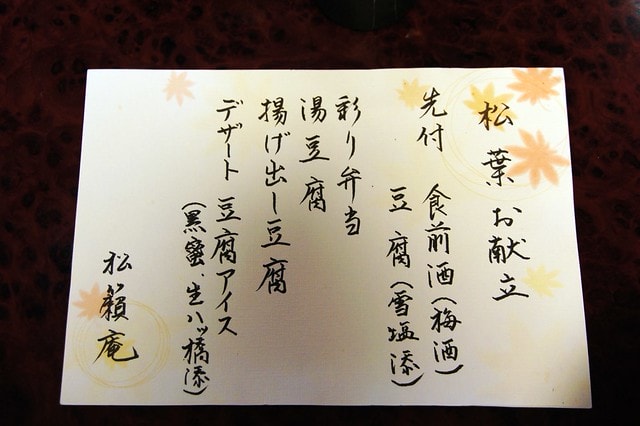 松葉お献立
先付　食前酒(梅酒)
豆腐(雪塩添)
彩り弁当
湯豆腐
揚げ出し豆腐
デザート　豆腐アイス
(黒蜜、生八ッ橋添)
松籟庵